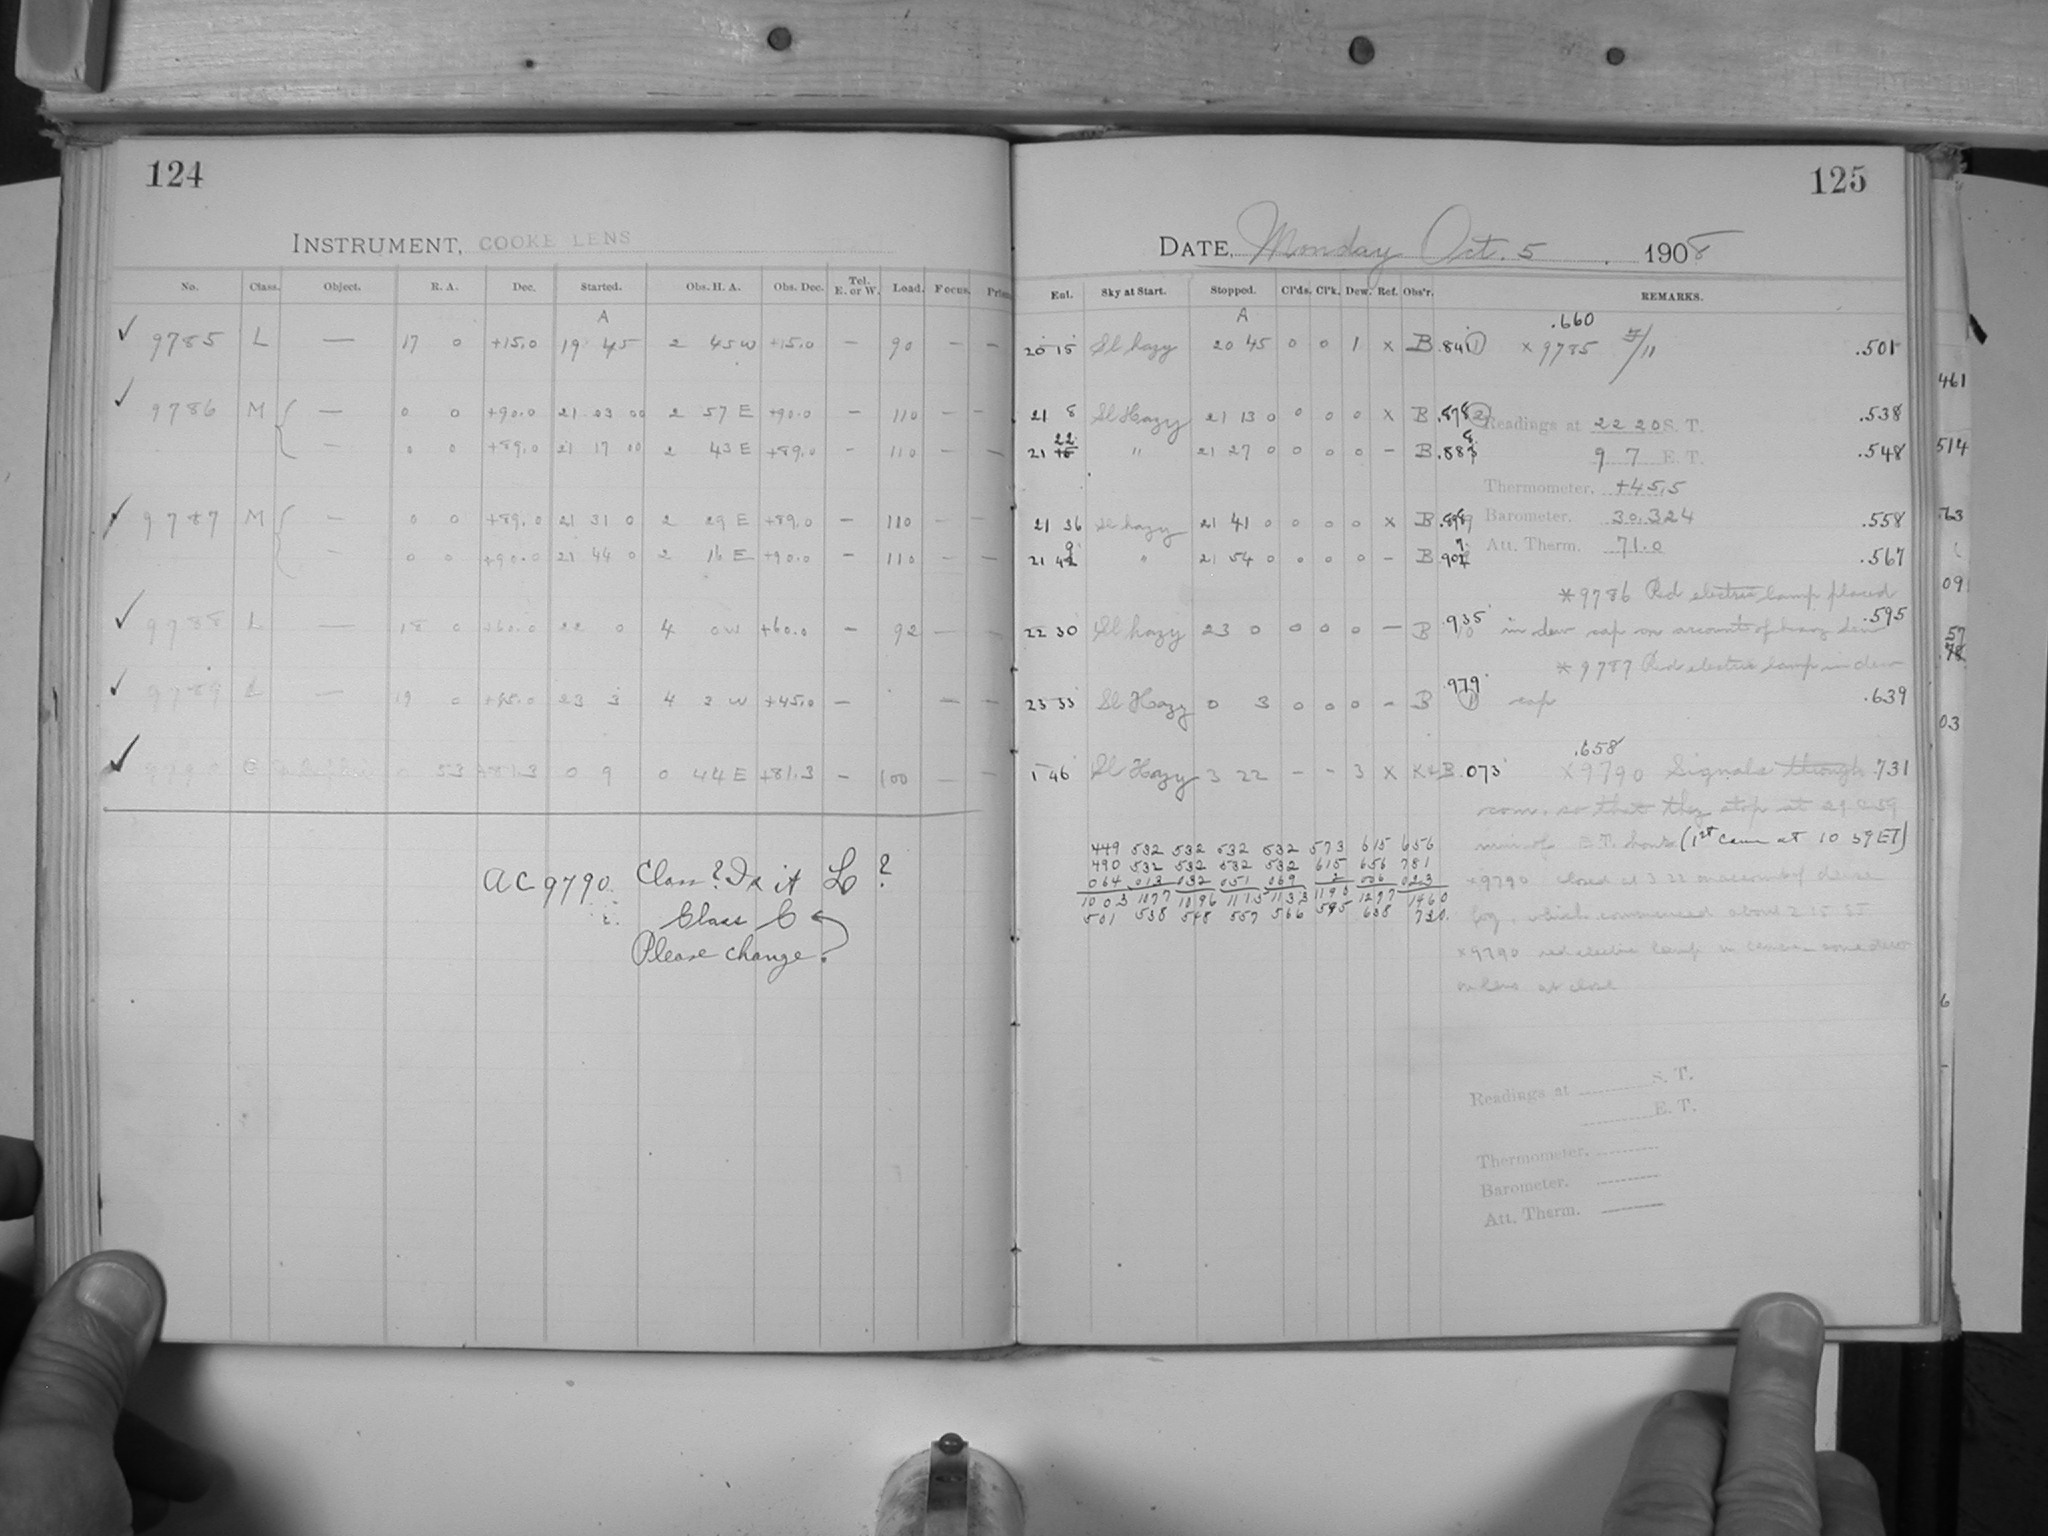 124
INSTRUMENT, COOKE LENS
No. Class. Object. R. A. Dec. Started. Obs. H. A. Obs. Dec. Tel. E. or W. Load. Focus.
A
✓ 9785 L — 17 0 +15.0 19 45 2 45 W +15.0 — 90 — —
✓ 9786 M — 0 0 +90.0 21 03 00 2 57 E +90.0 — 110 — —
— 0 0 +89.0 21 17 00 2 43 E +89.0 — 110 — —
✓ 9787 M — 0 0 +89.0 21 31 0 2 29 E +89.0 — 110 — —
— 0 0 +90.0 21 44 0 2 16 E +90.0 — 110 — —
✓ 9788 L — 18 0 +60.0 22 0 4 0 W +60.0 — 92 — —
✓ 9789 L — 19 0 +45.0 23 3 4 3 W +45.0 — — —
✓ 9790 C 0 53 +81.3 0 9 0 44 E +81.3 — 100 — —
AC 9790. Class? Is it L ?
Class C
Please change.
125
DATE, Monday Oct. 5 . 1908
Ent. Sky at Start. Stopped. Cl'ds. Cl'k. Dew. Ref. Obs'r. REMARKS.
A .660
20 15 Sl hazy 20 45 0 0 1 x B .841 1 x 9785 .501
461
21 8 Sl Hazy 21 13 0 0 0 0 x B .878 2 .538
Readings at 22 20 S. T.
22
21 Sl " 21 27 0 0 0 0 — B .548
514
9 7 E. T.
Thermometer, +45.5
21 36 Sl hazy 21 41 0 0 0 0 x B .558
Barometer. 30.324
63
21 " 21 54 0 0 0 0 — B .567
Att. Therm. 71.0
*9786 Red electric lamp placed
09
22 30 Sl hazy 23 0 0 0 0 — B .935 .595
in dew cap on account of heavy dew
57
*9787 Red electric lamp in dew
23 33 Sl Hazy 0 3 0 0 0 — B .979 1 cap .639
03
.658
1 46 Sl Hazy 3 22 — — 3 x K+B .073 x9790 Signals through .731
com. so that they stop at 29 & 59
min of E.T. hours (1st came at 10 59 ET)
449 532 532 532 532 573 615 656
490 532 532 532 532 615 656 781
064 013 032 051 069 2 026 023
1003 1077 1096 1115 1133 1190 1297 1460
501 538 548 557 566 595 638 730.
x9790 closed at 3 22 on account of dense
fog, which commenced about 2 15 ST
x9790 red electric lamp in camera some dew
on lens at close
6
Readings at S. T.
E. T.
Thermometer.
Barometer.
Att. Therm.